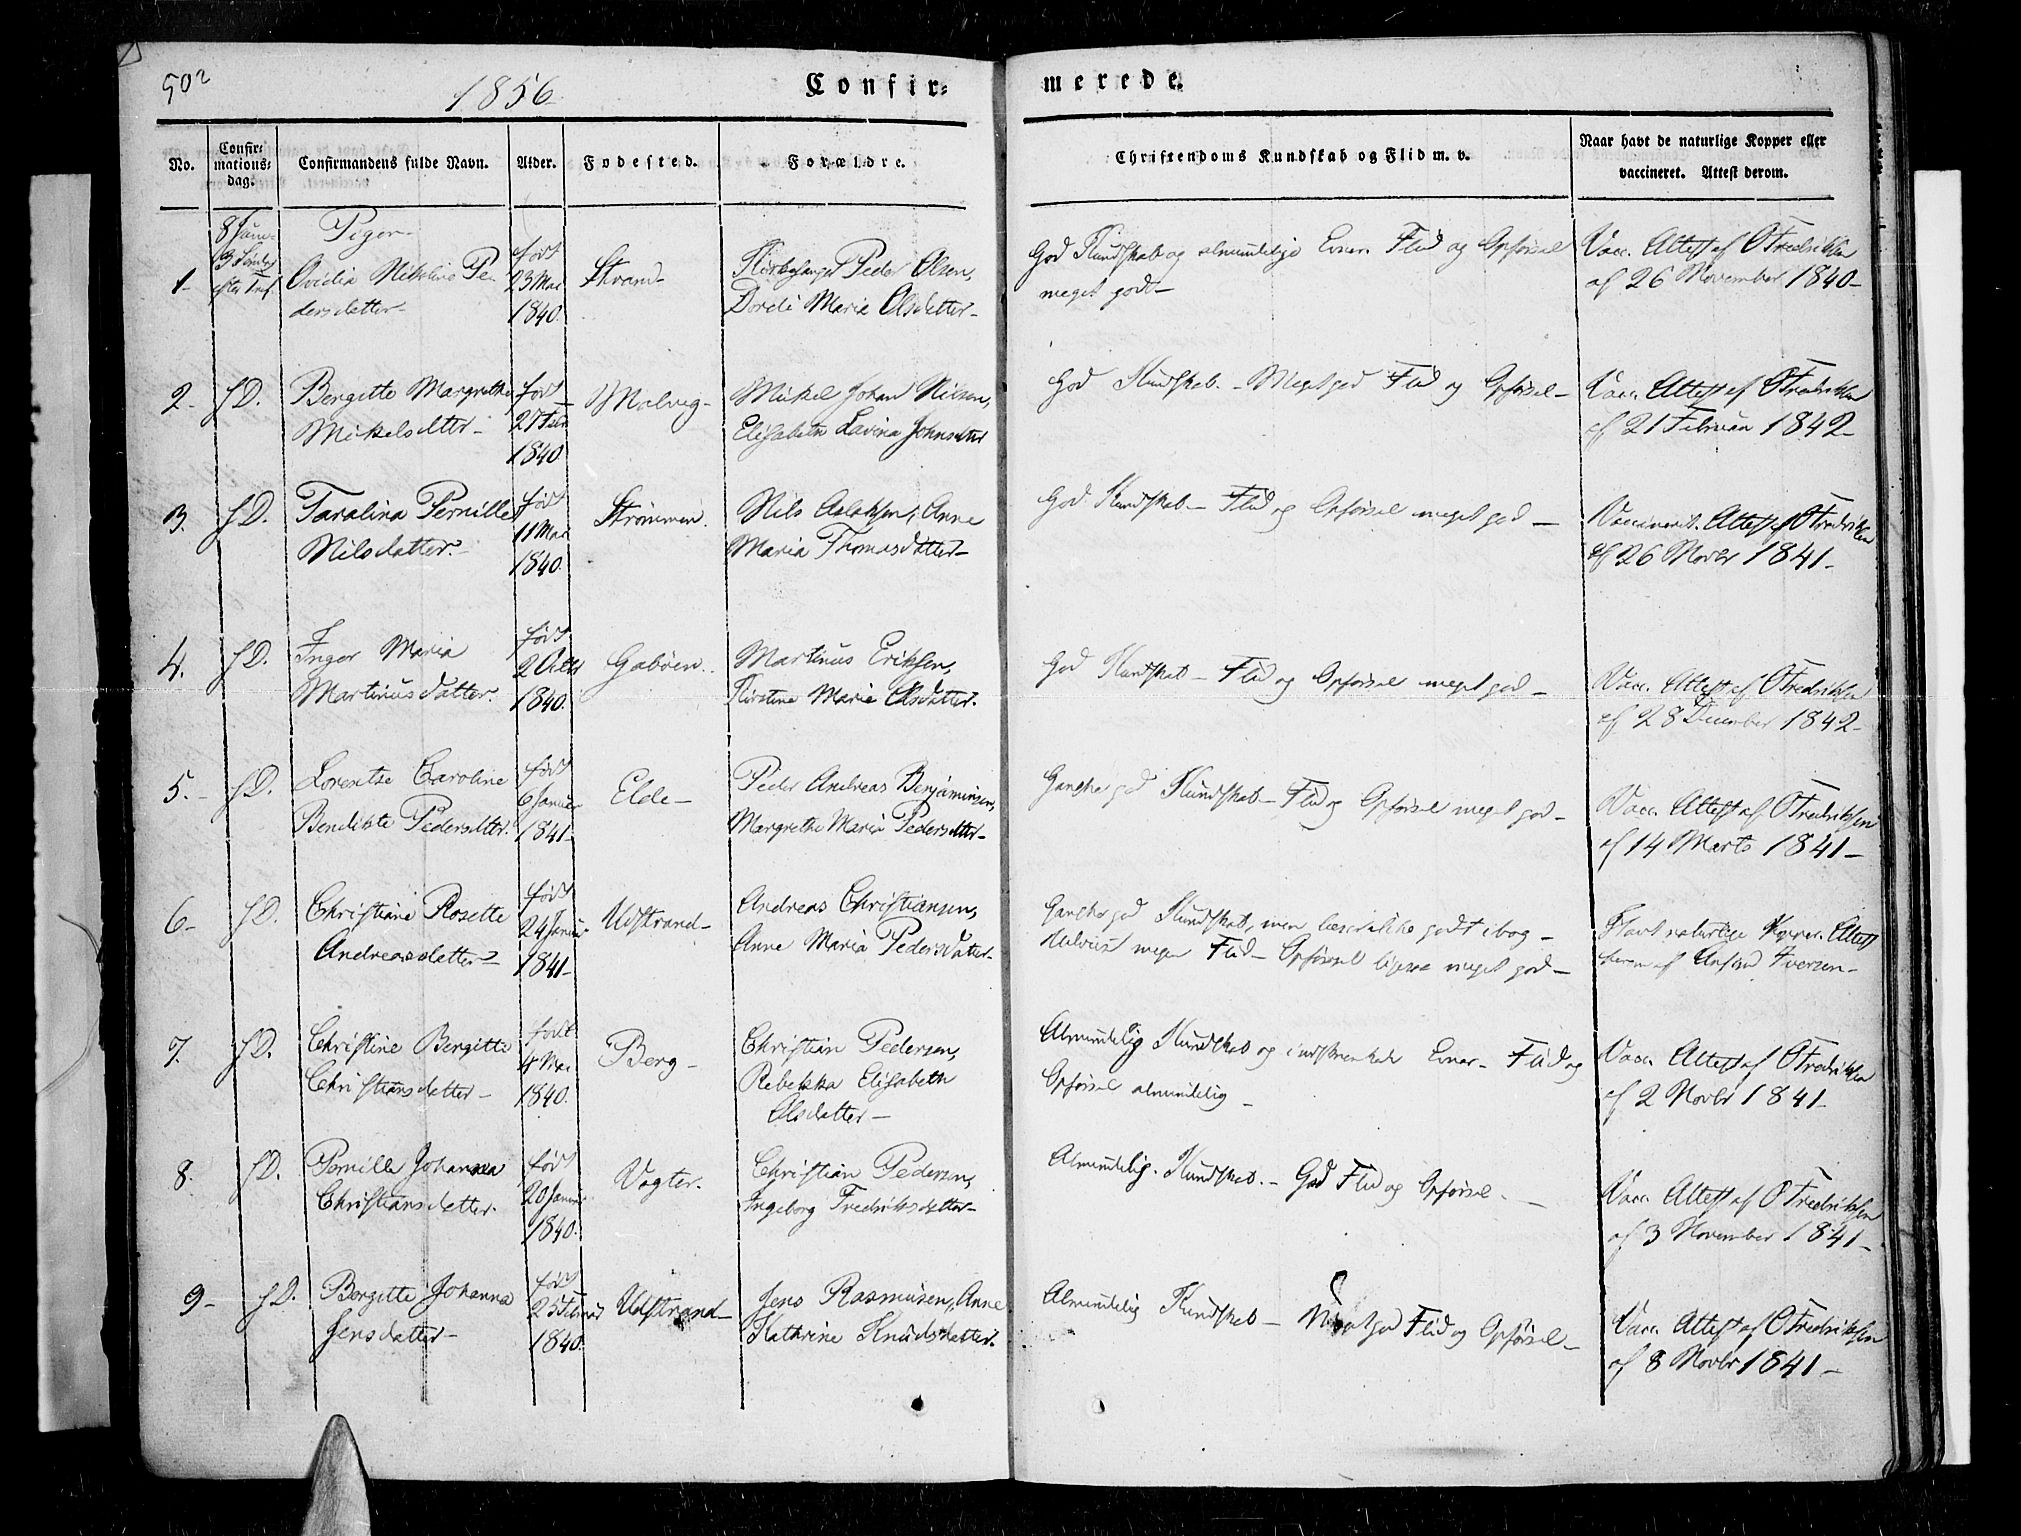 502
1856
Confir=
merede.
No.
Confir=
mations=
dag.
Confirmandens fulde Navn.
Alder.
Fødested.
Forældre.
Christendoms Kundskab og Flid m. v.
Naar havt de naturlige Kopper eller
vaccineret. Attest derom.
Piger
1. 8 Juni 3 Sönd. efter Tref. Ovidia Nikoline Pe- født 23 Mai Strand Kirkesanger Peder Olsen, God Kundskab og almindelige Evner. Flid og Opførsel Vacc. Attest af O Fredriksen
dersdatter 1840. Dordi Maria Olsdatter meget godt af 26 November 1840
2. s.D. Bergitte Margrethe født Malvig Mikel Johan Nilsen, God Kundskab. Meget god Flid og Opførsel Vacc. Attest af O Fredriksen
Mikelsdtter 27 Febr 1840 Elisabeth Lavina Johnsdtter af 21 Februar 1842
3. s.D. Taralina Pernille født Strømmen. Nils Aslaksen, Anne God Kundskab. Flid og Opførsel meget god Vaccineret. Attest af O Fredriksen
Nilsdatter. 11 Mai 1840. Maria Thomasdatter af 26 Novbr 1841
4. s.D. Inger Maria født Gabøen. Martinus Eriksen, God Kundskab Flid og Opførsel meget god Vacc. Attest af O Fredriksen
Martinusdatter. 2 Octbr 1840. Kirstine Marie Olsdatter. af 28 December 1842
5. s.D. Lorentse Caroline født Elde Peder Andreas Benjaminsen, Ganske god Kundskab Flid og Opførsel meget god Vacc. Attest af O Fredriksen
Bendikte Pedersdtter. 6 Januar 1841 Margrethe Maria Pedersdtter af 14 Marts 1841
6. s.D. Christiane Rosette født Udstrand Andreas Christiansen, Ganske god Kundskab, men læser ikke godt i bog Havt naturlige Kopper. Attest
Andreasdatter 24 Januar 1841 Anne Maria Pedersdatter. Flid Opførsel meget god derom af Iversen
7. s.D. Christine Bergitte født Berg Christian Pedersen, Almindelig Kundskab og indskrænkede Evner. Flid og Vacc. Attest af O Fredriksen
Christiansdatter 4 Mai 1840. Rebekka Elisabeth Opførsel almindelig af 2 Novbr 1841
Olsdatter
8. s.D. Pernille Johanna født Vogter. Christian Pedersen, Almindelig Kundskab. God Flid og Opførsel. Vacc. Attest af O Fredriksen
Christiansdatter. 20 Januar 1840. Ingeborg Fredriksdatter af 3 November 1841
9 s.D. Bergitte Johanna født Udstrand Jens Rasmusen, Anne Almindelig Kundskab Meget god Flid og Opførsel Vacc. Attest af O Fredriksen
Jensdatter 25 Februar 1840. Kathrine Knudsdatter. af 8 Novbr 1841